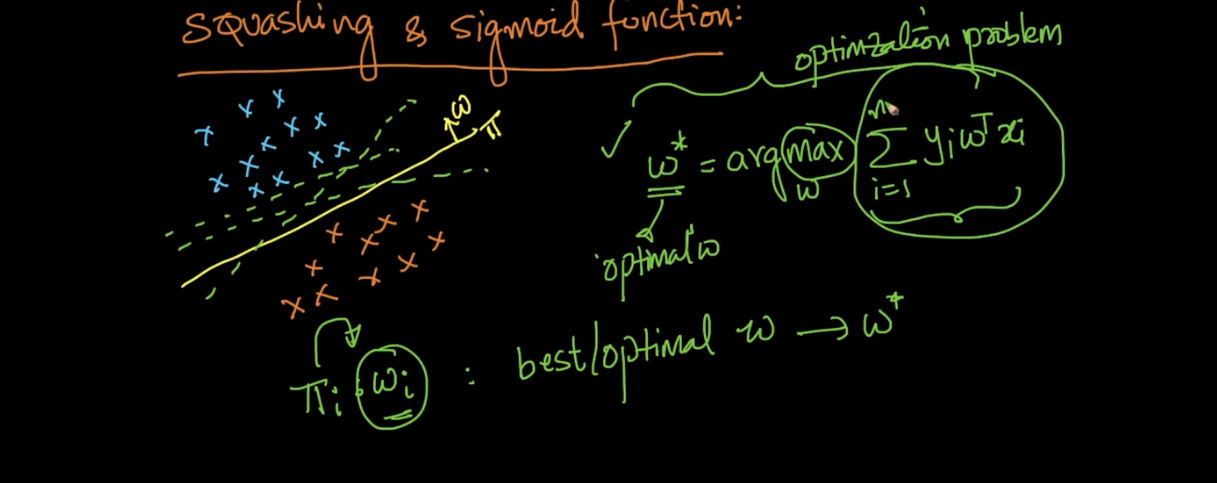 Squashing & Sigmoid function:
optimzation problem
w
π
w* = argmax_w Σ_{i=1}^{n} y_i w^T x_i
optimal w
π_i, w_i : best/optimal w → w*